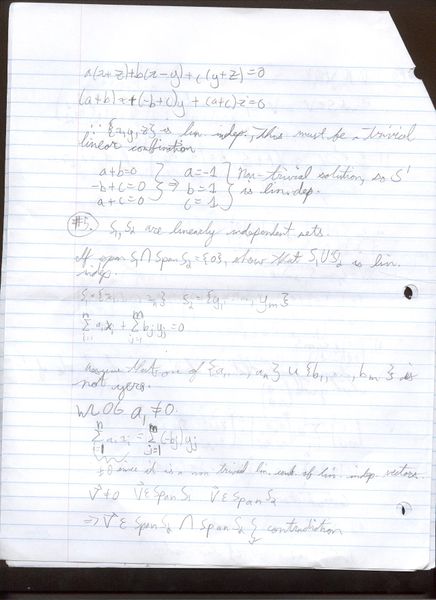 a(x+z)+b(x-y)+c(y+z)=0
(a+b)x+(-b+c)y+(a+c)z=0
∴ {x,y,z} is lin indep., this must be a trivial
linear combination.
a+b=0 } a=-1 } Non-trivial solution, so S'
-b+c=0 } ⇒ b=1 } is lin. dep.
a+c=0 } c=1 }
#5. S₁, S₂ are linearly independent sets.
If span S₁ ∩ Span S₂ = {0}, show that S₁∪S₂ is lin.
indep.
S₁={x₁, ..., xₙ} S₂={y₁, ..., yₘ}
∑ᵢ₌₁ⁿ aᵢxᵢ + ∑ⱼ₌₁ᵐ bⱼyⱼ=0
Assume that one of {a₁, ..., aₙ} ∪ {b₁, ..., bₘ} is
not zero.
WLOG a₁≠0.
∑ᵢ₌₁ⁿ aᵢxᵢ = ∑ⱼ₌₁ᵐ (-bⱼ)yⱼ
≠0 since it is a non trivial lin. comb. of lin. indep. vectors.
v⃗≠0 v⃗∈Span S₁ v⃗∈Span S₂
⇒ v⃗∈ Span S₂ ∩ Span S₂ } contradiction